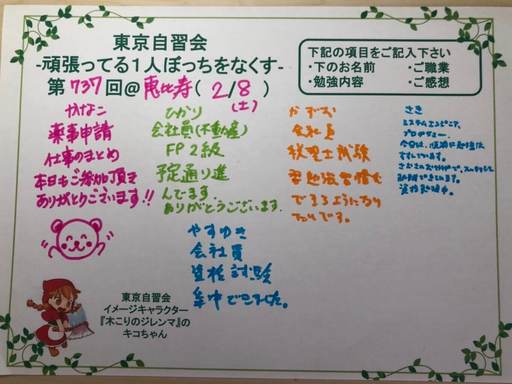 東京自習会
-頑張ってる1人ぼっちをなくす-
第737回@恵比寿(2/8)
(土)
下記の項目をご記入下さい
・下のお名前 ・ご職業
・勉強内容 ・ご感想
かなこ
薬事申請
仕事のまとめ
本日もご参加頂き
ありがとうございます!!
ひかり
会社員(不動産)
FP2級
予定通り進
んでます
ありがとうございます.
かずお
会社員
税理士試験
習慣も
できるようになり
たいです。
さき
システムエンジニア、
プログラマー
今日は、
資格勉強中
やすゆき
会社員
資格試験
集中できました。
東京自習会
イメージキャラクター
『木こりのジレンマ』の
キコちゃん